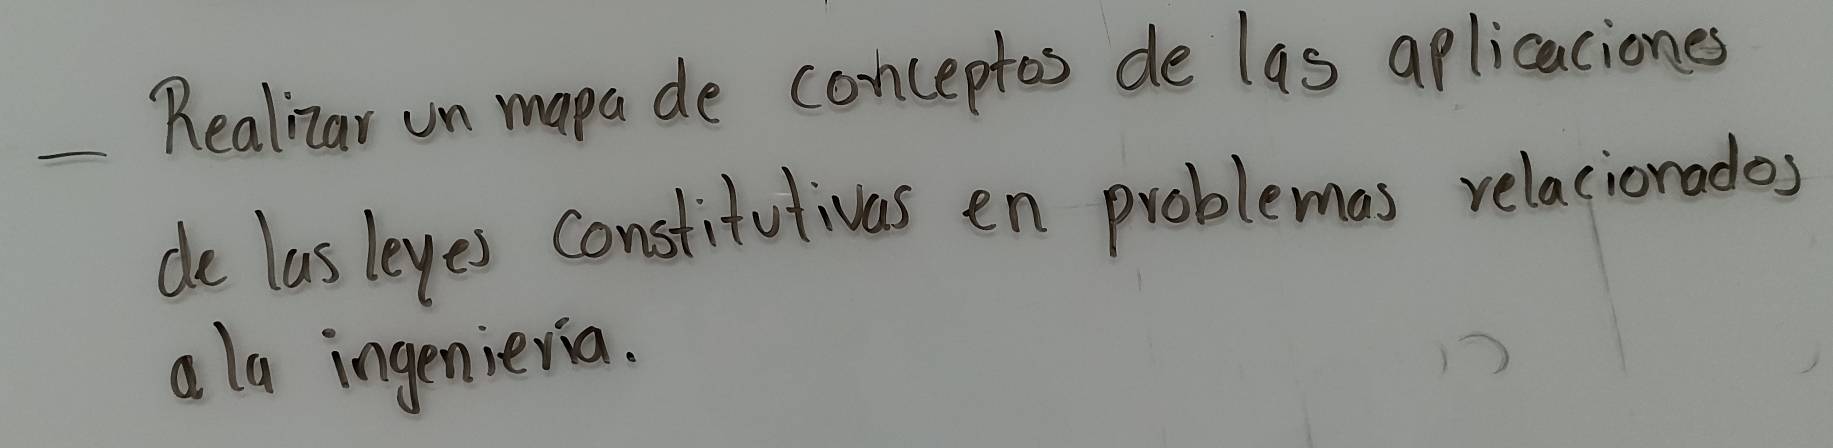 — Realizar un mapa de conceptos de las aplicaciones
de las leyes constitutivas en problemas relacionados
a la ingeniería.